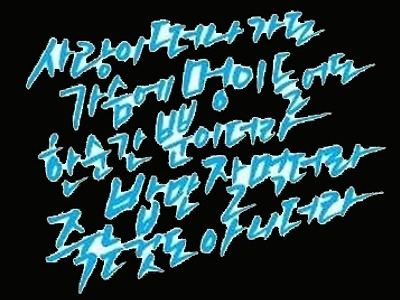 사랑이 떠나 가도
가슴에 멍이 들어도
한순간 뿐이더라
밥만 잘먹더라
죽는것도 아니더라